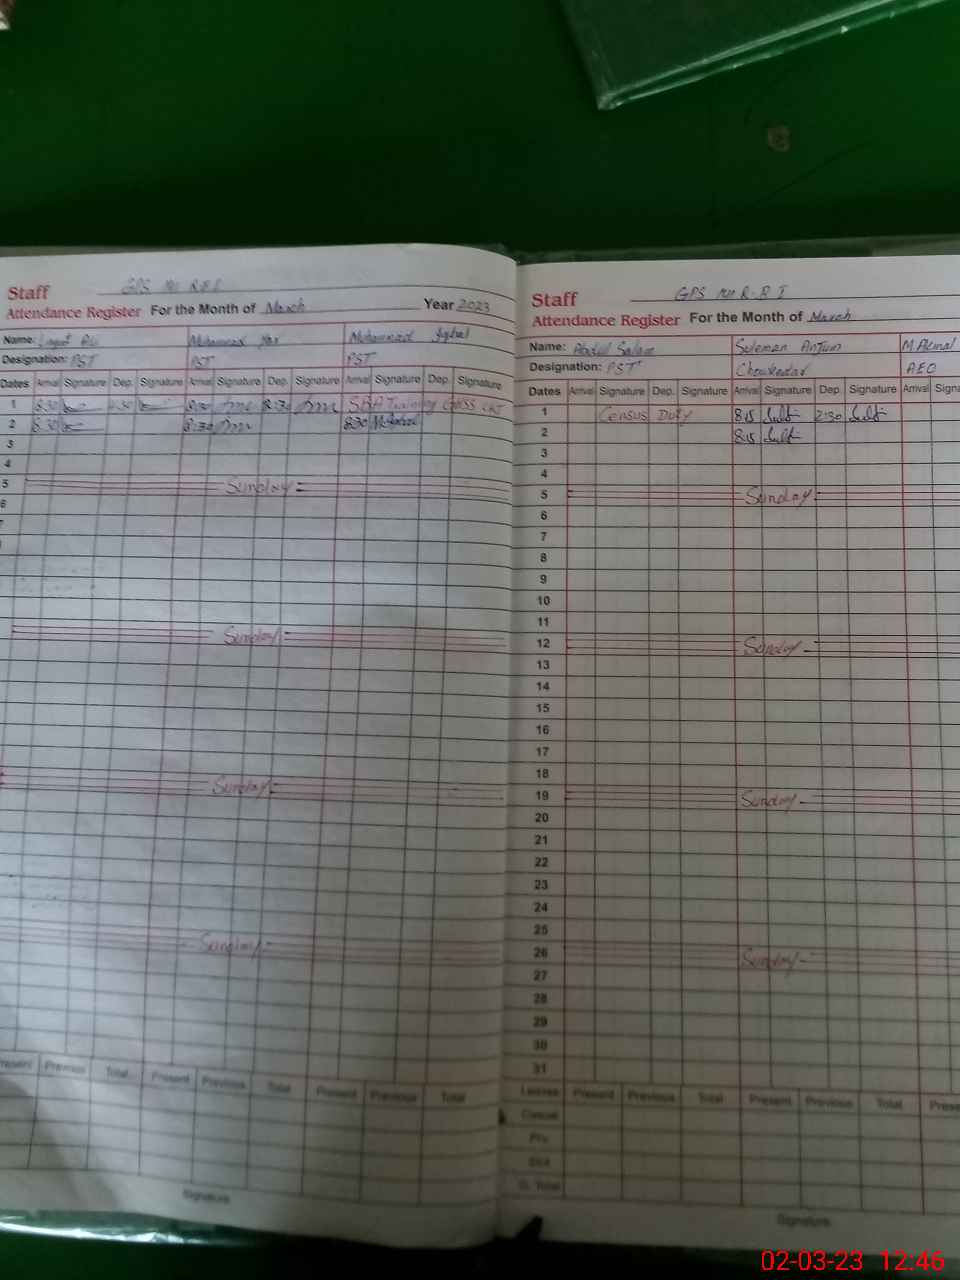 Staff GPS
Attendance Register For the Month of March Year 2023
Name: Muhammad Muhammad Iqbal
Designation: PST PST PST
Dates Arrival Signature Dep. Signature Arrival Signature Dep. Signature Arrival Signature Dep. Signature
1 8:30 8:30 SBA Training
2 8:30 8:30 830 M.Iqbal
3
4
5 Sunday
6
Sunday
Sunday
Sunday
Present Previous Total Present Previous Total Present Previous Total
Signature
Staff GPS
Attendance Register For the Month of March
Name: Abdul Salam Suleman Anjum M Akmal
Designation: PST Chowkedar AEO
Dates Arrival Signature Dep. Signature Arrival Signature Dep. Signature Arrival Signa
1 Census Duty 8:15 2:30
2 8:15
3
4
5 Sunday
6
7
8
9
10
11
12 Sunday
13
14
15
16
17
18
19 Sunday
20
21
22
23
24
25
26 Sunday
27
28
29
30
31
Leaves Present Previous Total Present Previous Total Prese
Casual
Priv.
Sick
G. Total
Signature
02-03-23 12:46